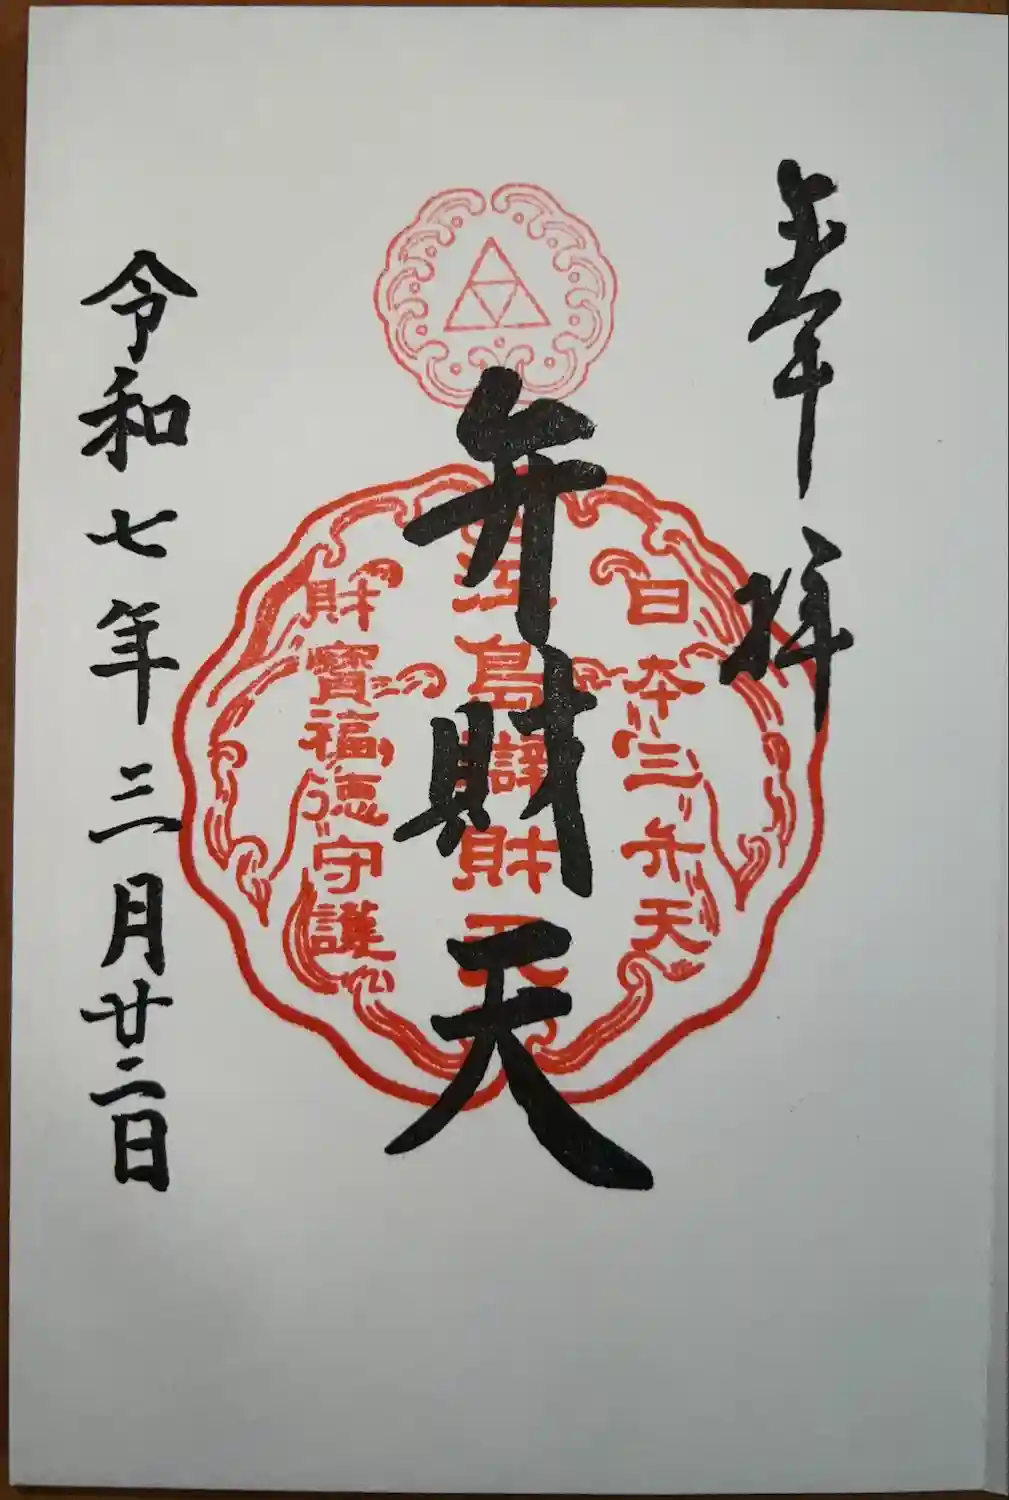 奉拝
日本三弁天
江島辨財天
財寶福徳守護
弁財天
令和七年三月廿二日